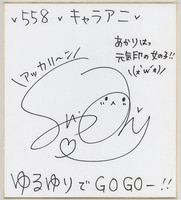 ♥ 558 ♥ キャラアニ ♥
あかりは、
元気印の女の子!!
\アッカリ〜ン/
ゆるゆりでGOGOー!!